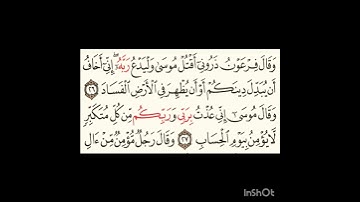 وَقَالَ فِرْعَوْنُ ذَرُونِي أَقْتُلْ مُوسَىٰ وَلْيَدْعُ رَبَّهُ ۖ إِنِّي أَخَافُ
أَن يُبَدِّلَ دِينَكُمْ أَوْ أَن يُظْهِرَ فِي الْأَرْضِ الْفَسَادَ ٢٦
وَقَالَ مُوسَىٰ إِنِّي عُذْتُ بِرَبِّي وَرَبِّكُم مِّن كُلِّ مُتَكَبِّرٍ
لَّا يُؤْمِنُ بِيَوْمِ الْحِسَابِ ٢٧ وَقَالَ رَجُلٌ مُّؤْمِنٌ مِّنْ ءَالِ
InShOt